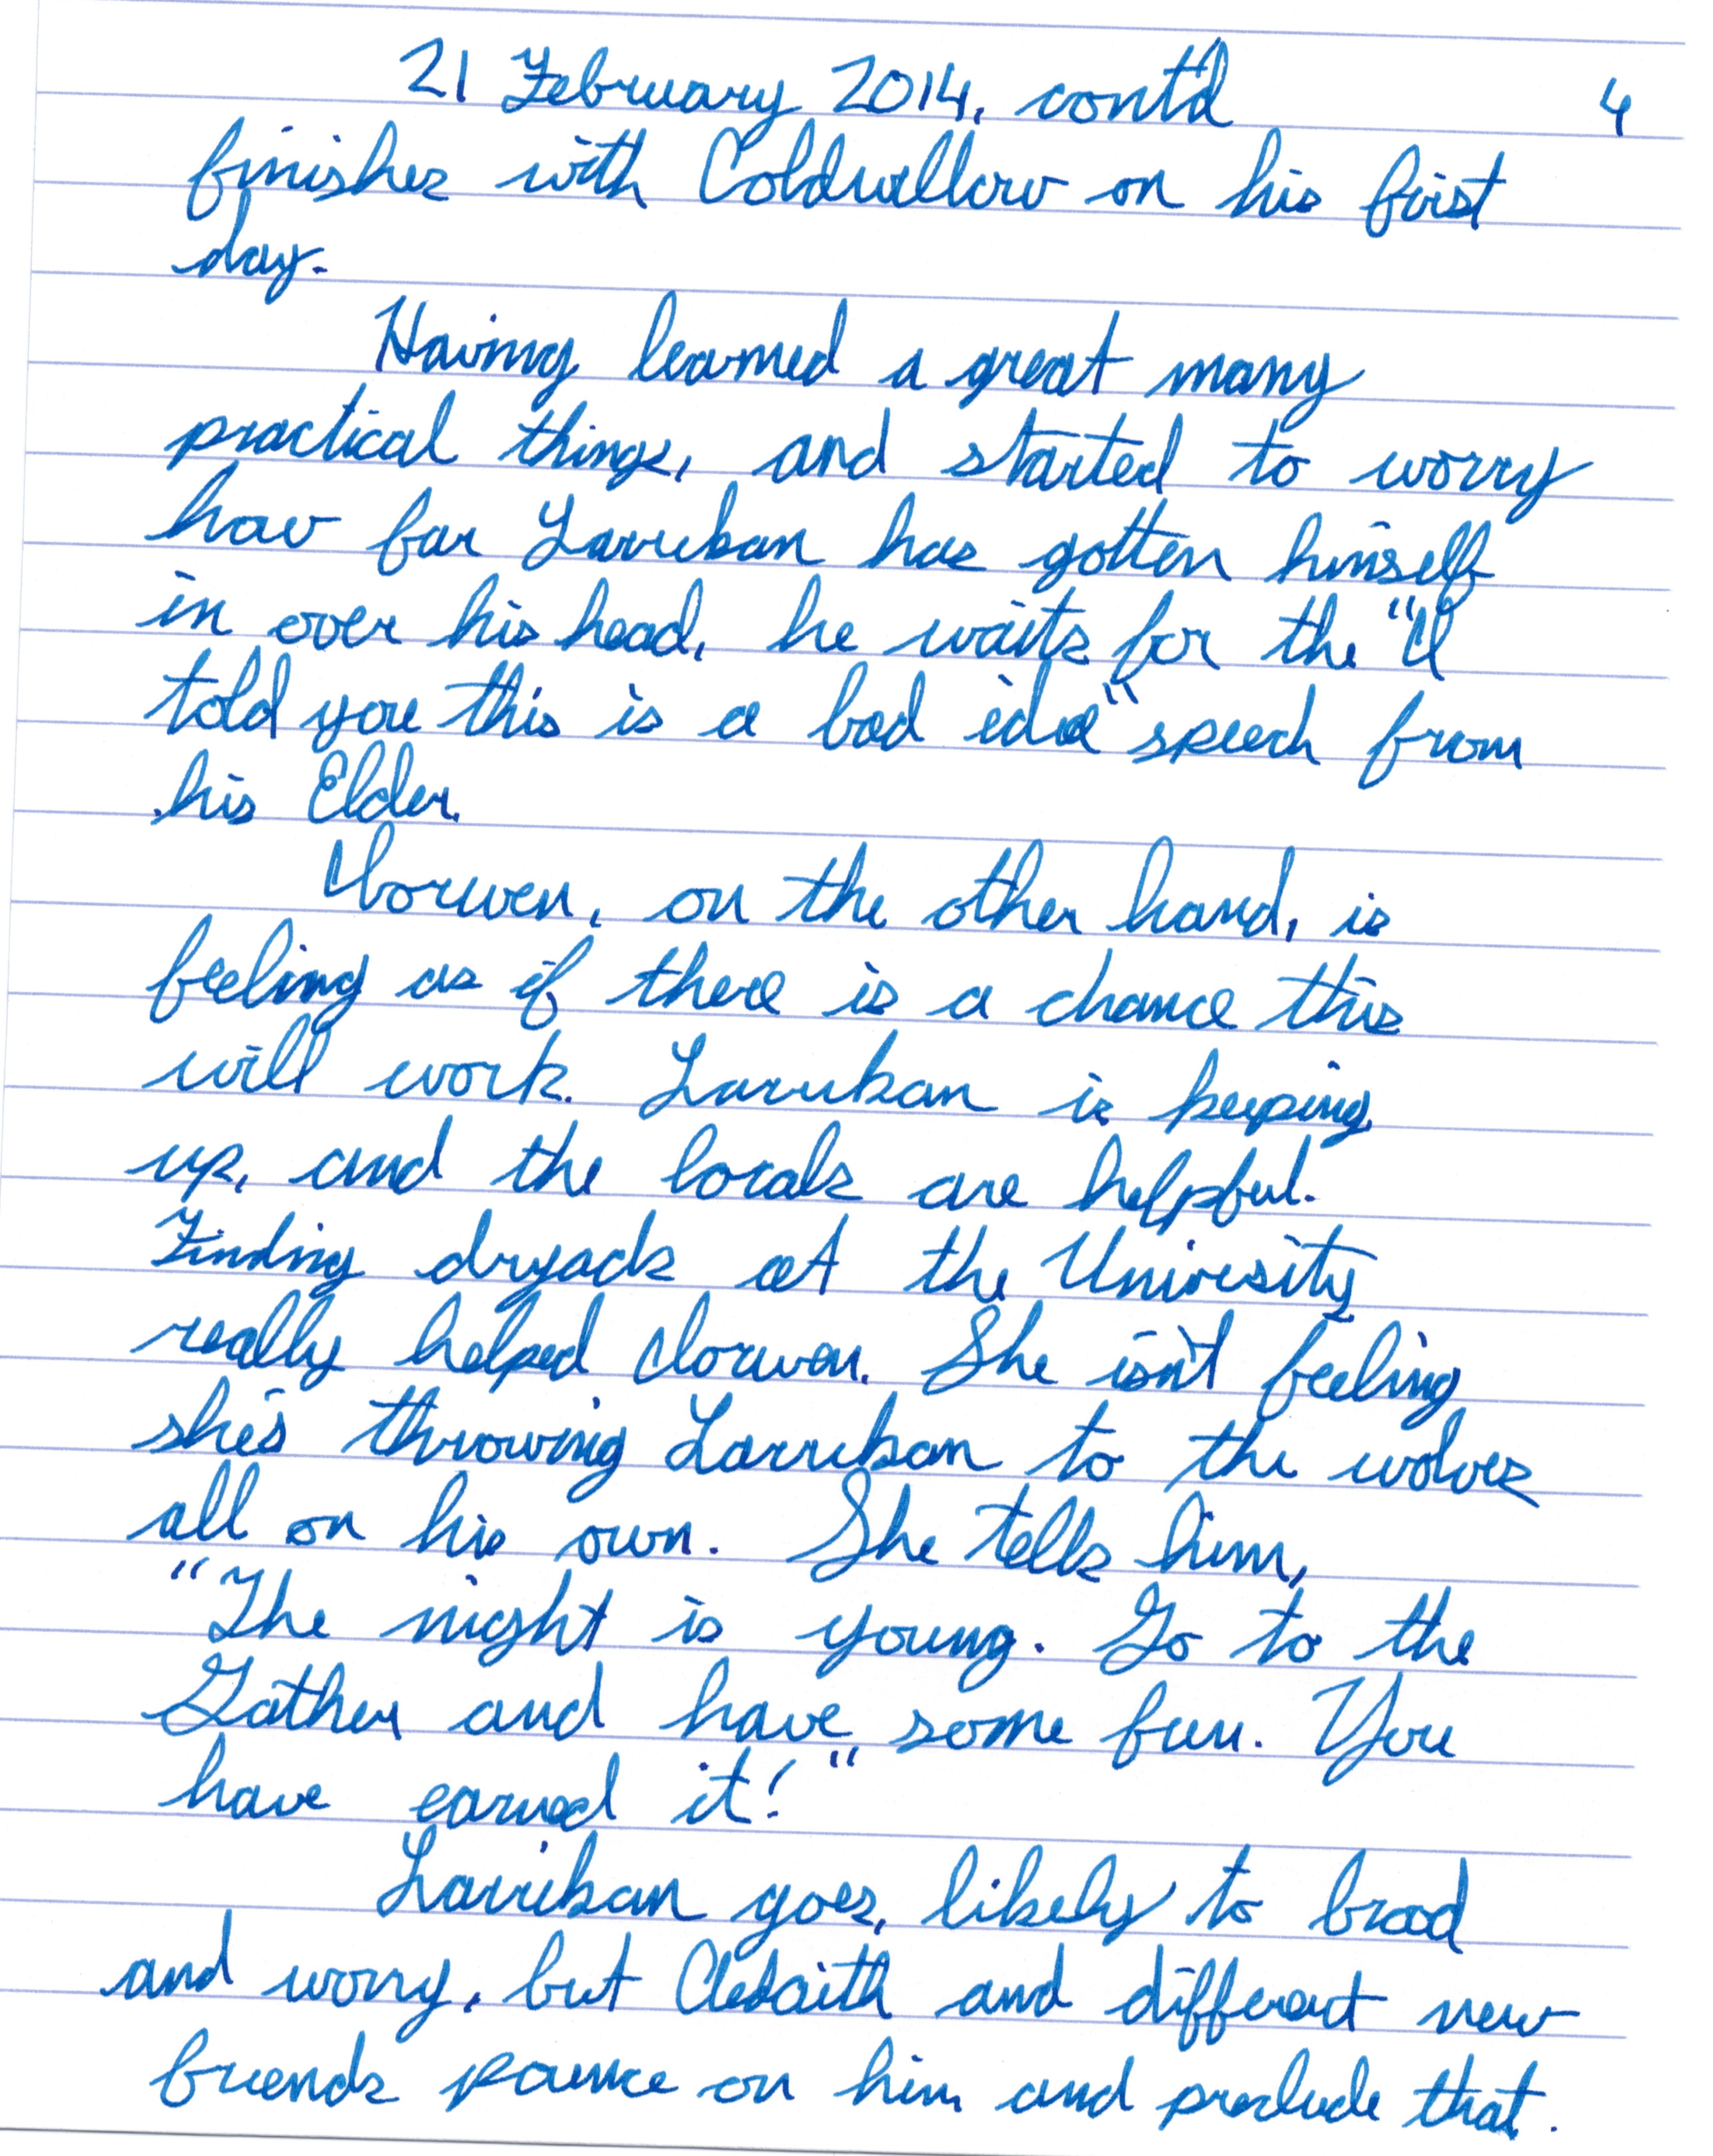 21 February 2014, cont'd 4
finishes with Coldwillow on his first
day.
Having learned a great many
practical things, and started to worry
how far Larriban has gotten himself
in over his head, he waits for the "I
told you this is a bad idea" speech from
his Elder.
Clorwen, on the other hand, is
feeling as if there is a chance this
will work. Larriban is keeping
up, and the locals are helpful.
Finding dryads at the University
really helped Clorwen. She isn't feeling
she's throwing Larriban to the wolves
all on his own. She tells him,
"The night is young. Go to the
Gather and have some fun. You
have earned it!"
Larriban goes, likely to brood
and worry, but and different new
friends pounce on him and preclude that.